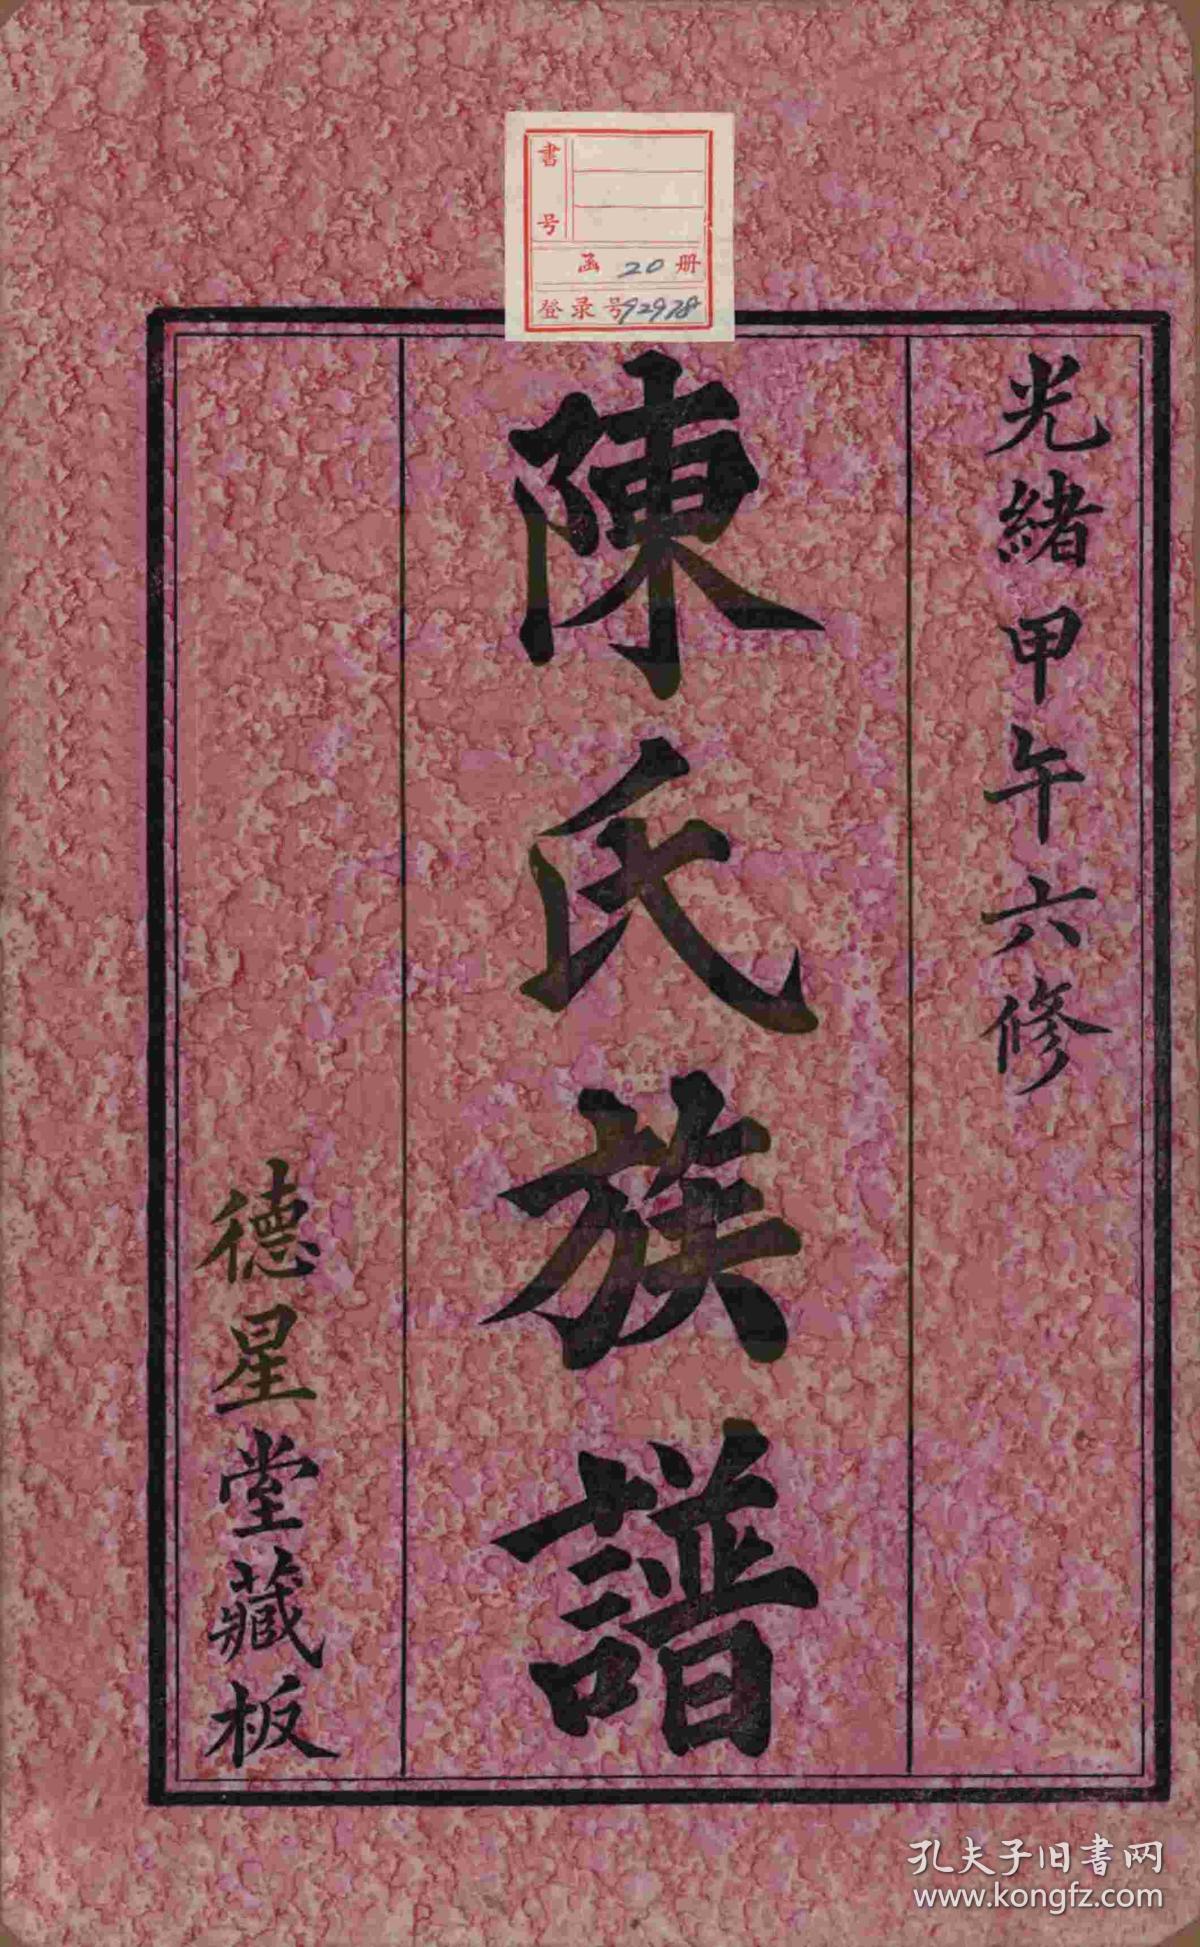 書号
函 20 册
登录号92978
光緒甲午六修
陳氏族譜
德星堂藏板
孔夫子旧書网
www.kongfz.com